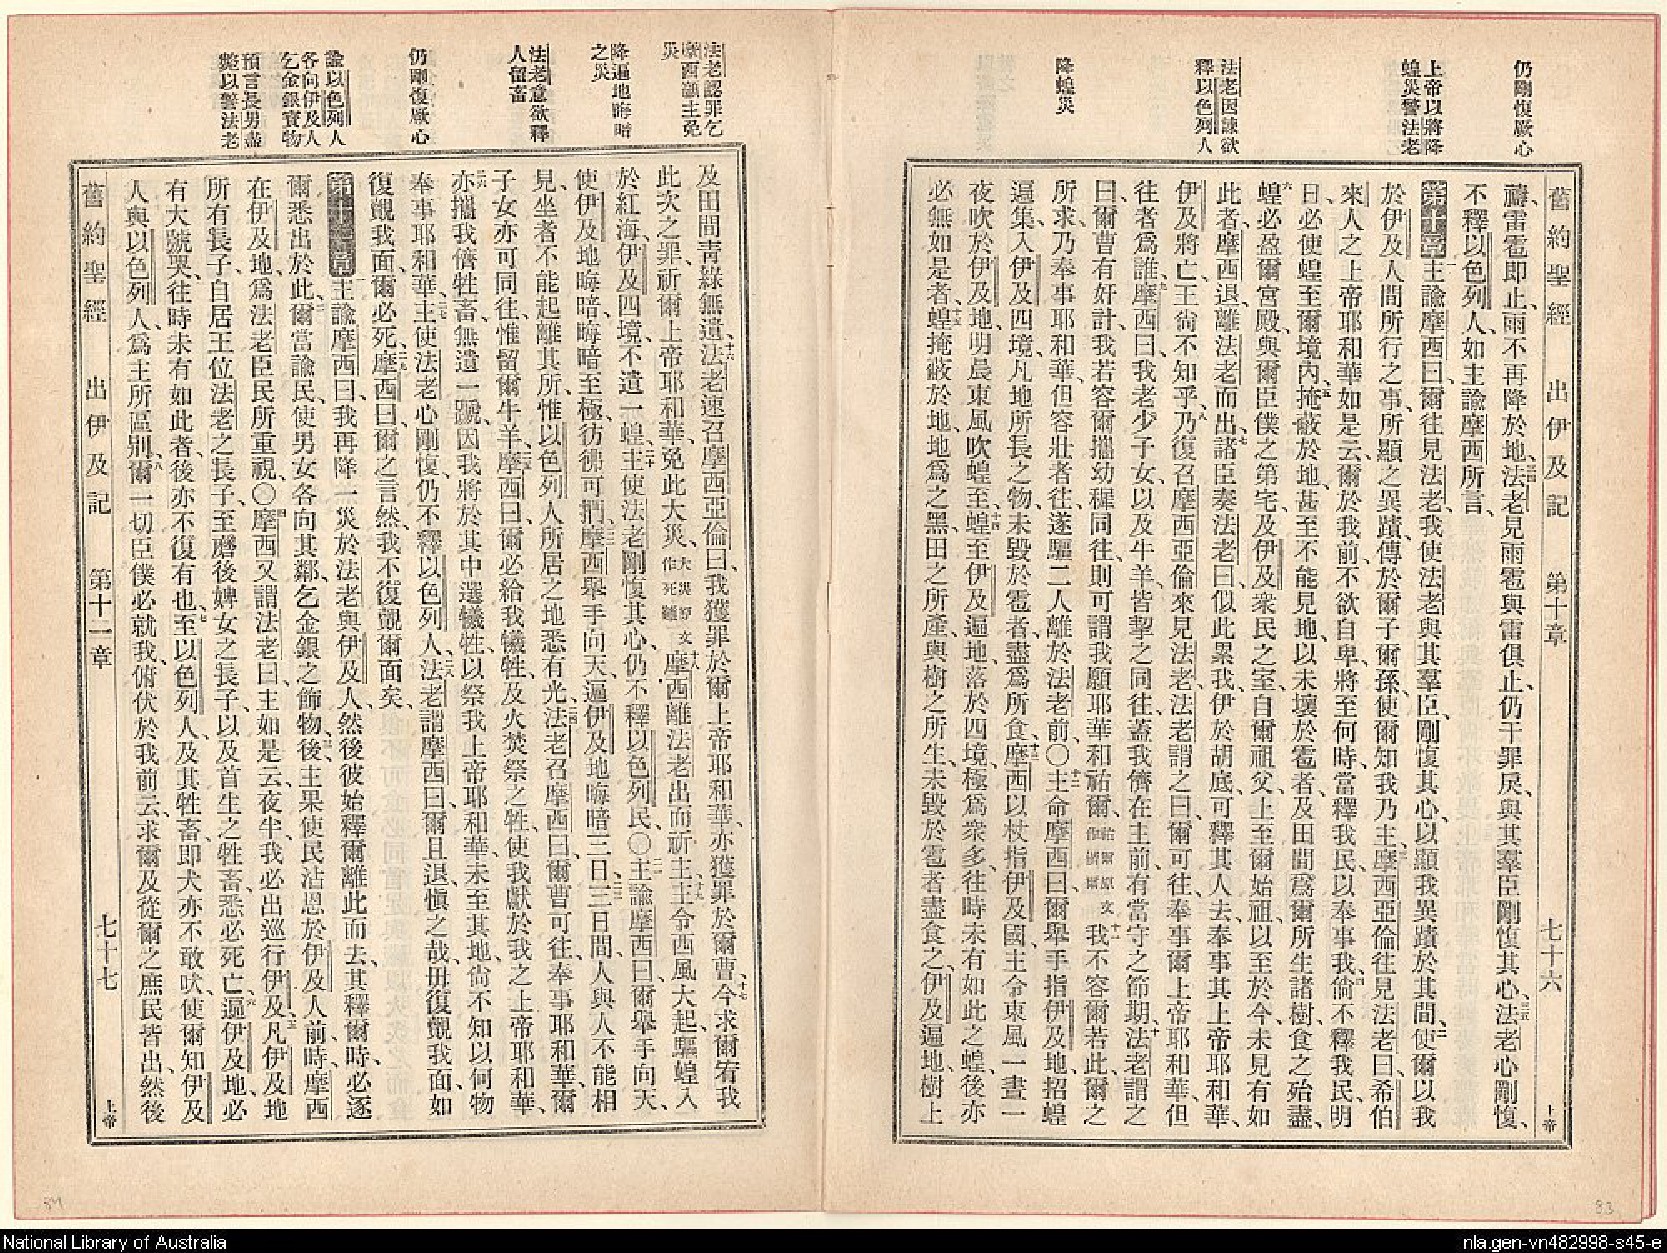 仍剛愎厥心
上帝以將降
蝗災警法老
法老因諫欲
釋以色列人
降蝗災
舊約聖經 出伊及記 第十章 七十六 上帝
禱、雷雹即止、雨不再降於地、三四法老見雨雹與雷俱止、仍干罪戾、與其羣臣剛愎其心、三五法老心剛愎、
不釋以色列人、如主諭摩西所言、
第十章一主諭摩西曰、爾往見法老、我使法老與其羣臣、剛愎其心、以顯我異蹟於其間、二使爾以我
於伊及人間所行之事、所顯之異蹟、傳於爾子爾孫、使爾知我乃主、三摩西亞倫往見法老曰、希伯
來人之上帝耶和華如是云、爾於我前、不欲自卑、將至何時、當釋我民、以奉事我、四倘不釋我民、明
日必使蝗至爾境內、五掩蔽於地、甚至不能見地、以未壞於雹者、及田間爲爾所生諸樹、食之殆盡、
六蝗必盈爾宮殿、與爾臣僕之第宅、及伊及衆民之室、自爾祖父、上至爾始祖、以至於今、未見有如
此者、摩西退、離法老而出、七諸臣奏法老曰、似此累我、伊於胡底、可釋其人去、奉事其上帝耶和華、
伊及將亡、王尙不知乎、八乃復召摩西亞倫來見法老、法老謂之曰、爾可往、奉事爾上帝耶和華、但
往者爲誰、九摩西曰、我老少子女、以及牛羊、皆挈之同往、蓋我儕在主前、有當守之節期、十法老謂之
曰、爾曹有奸計、我若容爾攜幼穉同往、則可謂我願耶華和祐爾、祐爾原文作偕爾十一我不容爾若此、爾之
所求、乃奉事耶和華、但容壯者往、遂驅二人離於法老前、〇十二主命摩西曰、爾舉手指伊及地、招蝗
遍集、入伊及四境、凡地所長之物、未毀於雹者、盡爲所食、十三摩西以杖指伊及國、主令東風一晝一
夜吹於伊及地、明晨東風吹蝗至、十四蝗至伊及遍地、落於四境、極爲衆多、往時未有如此之蝗、後亦
必無如是者、十五蝗掩蔽於地、地爲之黑、田之所產、與樹之所生、未毀於雹者盡食之、伊及遍地、樹上
法老認罪乞
摩西籲主免
災
降遍地晦暗
之災
法老意欲釋
人留畜
仍剛愎厥心
諭以色列人
各向伊及人
乞金銀寶物
預言長男盡
斃以警法老
及田間靑綠無遺、十六法老速召摩西亞倫曰、我獲罪於爾上帝耶和華、亦獲罪於爾曹、十七今求爾宥我
此次之罪、祈爾上帝耶和華、免此大災、大災原文作死亡十八摩西離法老出而祈主、十九主令西風大起、驅蝗入
於紅海、伊及四境、不遺一蝗、二十主使法老剛愎其心、仍不釋以色列民、〇二一主諭摩西曰、爾舉手向天、
使伊及地晦暗、晦暗至極、彷彿可捫、二二摩西舉手向天、遍伊及地晦暗三日、二三三日間、人與人不能相
見、坐者不能起離其所、惟以色列人所居之地悉有光、二四法老召摩西曰、爾曹可往、奉事耶和華、爾
子女亦可同往、惟留爾牛羊、二五摩西曰、爾必給我犧牲、及火焚祭之牲、使我獻於我之上帝耶和華、
二六亦攜我儕牲畜、無遺一蹏、因我將於其中選犧牲、以祭我上帝耶和華、未至其地、尙不知以何物
奉事耶和華、二七主使法老心剛愎、仍不釋以色列人、二八法老謂摩西曰、爾且退、愼之哉、毋復覿我面、如
復覿我面、爾必死、二九摩西曰、爾之言然、我不復覿爾面矣、
第十一章一主諭摩西曰、我再降一災於法老與伊及人、然後彼始釋爾離此而去、其釋爾時、必逐
爾悉出於此、二爾當諭民、使男女各向其鄰、乞金銀之飾物、三後主果使民沾恩於伊及人前、時摩西
在伊及地、爲法老臣民所重視、〇四摩西又謂法老曰、主如是云、夜半我必出巡行伊及、五凡伊及地
所有長子、自居王位法老之長子、至磨後婢女之長子、以及首生之牲畜、悉必死亡、六遍伊及地必
有大號哭、往時未有如此者、後亦不復有也、七至以色列人及其牲畜、即犬亦不敢吠、使爾知伊及
人與以色列人、爲主所區別、八爾一切臣僕必就我、俯伏於我前云、求爾及從爾之庶民皆出、然後
舊約聖經 出伊及記 第十二章 七十七 上帝
National Library of Australia
nla.gen-vn482998-s45-e